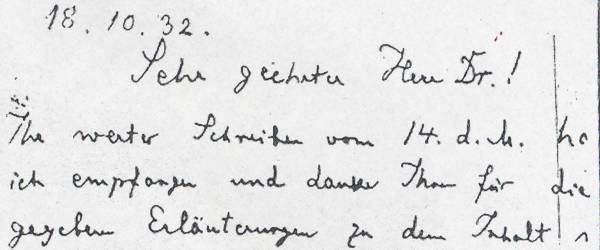 18. 10. 32.
Sehr geehrter Herr Dr.!
Ihr werter Schreiben vom 14. d. M. ha
ich empfangen und danke Ihnen für die
gegebenen Erläuterungen zu dem Inhalt